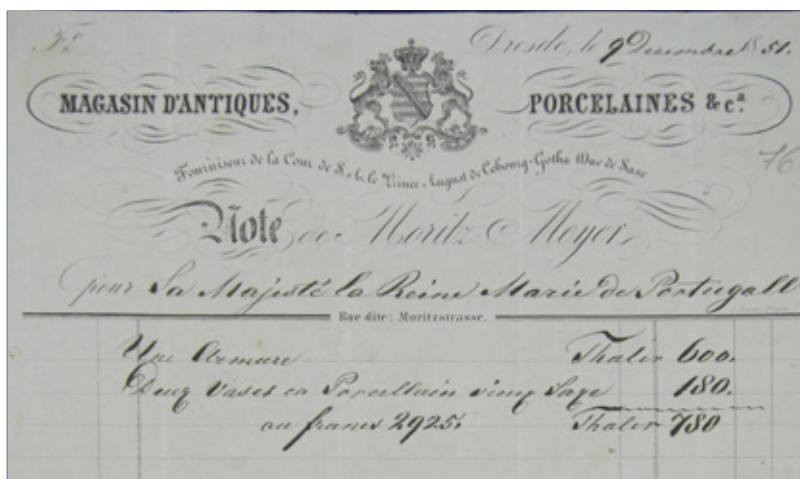 Fº
Dresde, le 9 Decembre 1851.
MAGASIN D'ANTIQUES,
PORCELAINES & Cª.
76
Fournisseur de la Cour de S. A. le Prince August de Cobourg-Gotha Duc de Saxe
Note de Moritz Meyer
pour Sa Majesté la Reine Marie de Portugall
Rue dite: Moritzstrasse.
Une Armure Thaler 600.
Deux Vases en Porcellain vieux Saxe 180.
ou francs 2925. Thaler 780